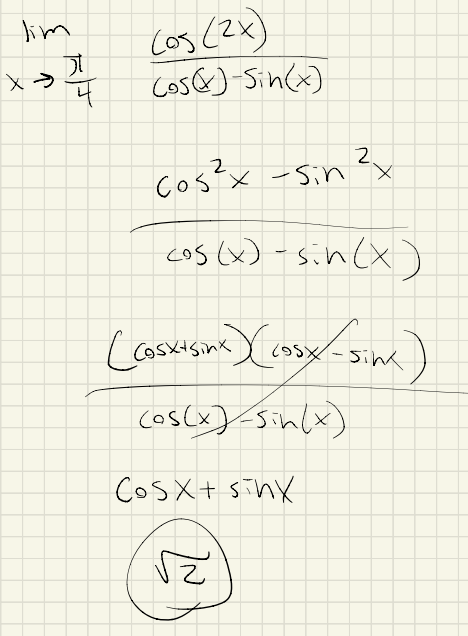 lim x→π/4 cos(2x)/cos(x)-sin(x)
cos²x - sin²x
cos(x) - sin(x)
(cosx+sinx)(cosx - sinx)
cos(x) - sin(x)
cosx + sinx
√2